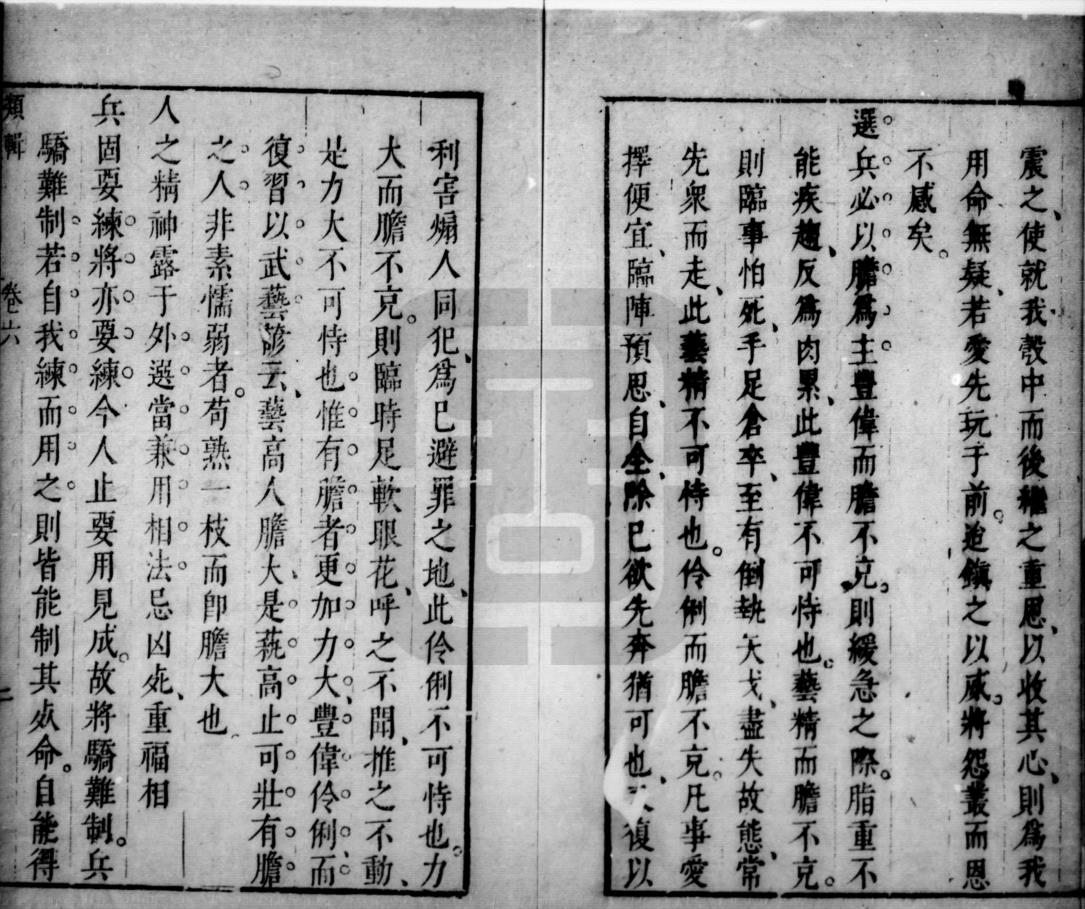 震之使就我彀中而後種之重恩以收其心則爲我
用命無疑若愛先玩于前迨鎭之以威將怨叢而恩
不感矣
選兵必以膽爲主豐偉而膽不克則緩急之際脂重不
能疾趨反爲肉累此豐偉不可恃也藝精而膽不克
則臨事怕死手足倉卒至有倒執矢戈盡失故態常
先衆而走此藝精不可恃也伶俐而膽不克凡事愛
擇便宜臨陣預思自全除已欲先奔猶可也又復以
利害煽人同犯爲已避罪之地此伶俐不可恃也力
大而膽不克則臨時足軟眼花呼之不聞推之不動
是力大不可恃也惟有膽者更加力大豐偉伶俐而
復習以武藝諺云藝高人膽大是藝高止可壯有膽
之人非素懦弱者苟熟一枝而卽膽大也
人之精神露于外選當兼用相法忌凶死重福相
兵固要練將亦要練今人止要用見成故將驕難制兵
驕難制若自我練而用之則皆能制其死命自能得
類輯 卷六 二